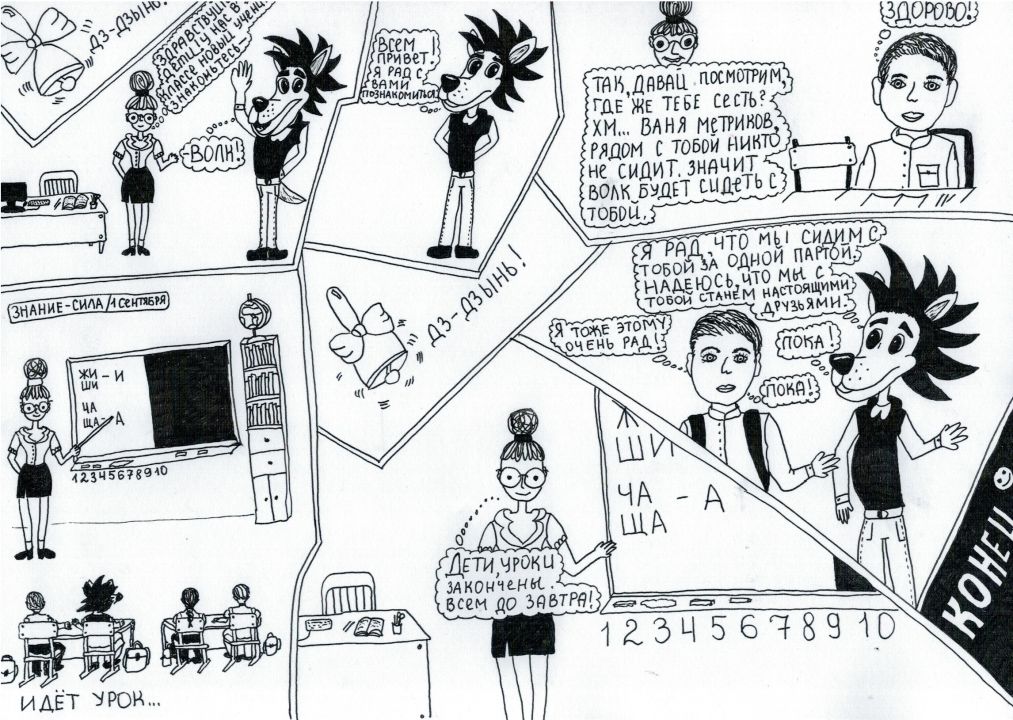 ДЗ-ДЗЫНЬ!
ЗДРАВСТВУЙТЕ,
ДЕТИ! У НАС В
КЛАССЕ НОВЫЙ УЧЕНИК.
ЗНАКОМЬТЕСЬ...
-ВОЛК!
ВСЕМ
ПРИВЕТ!
Я РАД С
ВАМИ
ПОЗНАКОМИТЬСЯ!
ТАК, ДАВАЙ ПОСМОТРИМ,
ГДЕ ЖЕ ТЕБЕ СЕСТЬ?
ХМ... ВАНЯ МЕТРИКОВ,
РЯДОМ С ТОБОЙ НИКТО
НЕ СИДИТ. ЗНАЧИТ
ВОЛК БУДЕТ СИДЕТЬ С
ТОБОЙ.
ЗДОРОВО!
ЗНАНИЕ-СИЛА/1 СЕНТЯБРЯ
ЖИ - И
ШИ
ЧА
ЩА - А
12345678910
ИДЁТ УРОК...
ДЗ-ДЗЫНЬ!
ДЕТИ, УРОКИ
ЗАКОНЧЕНЫ.
ВСЕМ ДО ЗАВТРА!
Ж
ШИ
ЧА
ЩА - А
1 2 3 4 5 6 7 8 9 10
Я РАД, ЧТО МЫ СИДИМ С
ТОБОЙ ЗА ОДНОЙ ПАРТОЙ.
НАДЕЮСЬ, ЧТО МЫ С
ТОБОЙ СТАНЕМ НАСТОЯЩИМИ
ДРУЗЬЯМИ.
Я ТОЖЕ ЭТОМУ
ОЧЕНЬ РАД!
ПОКА!
ПОКА!
КОНЕЦ